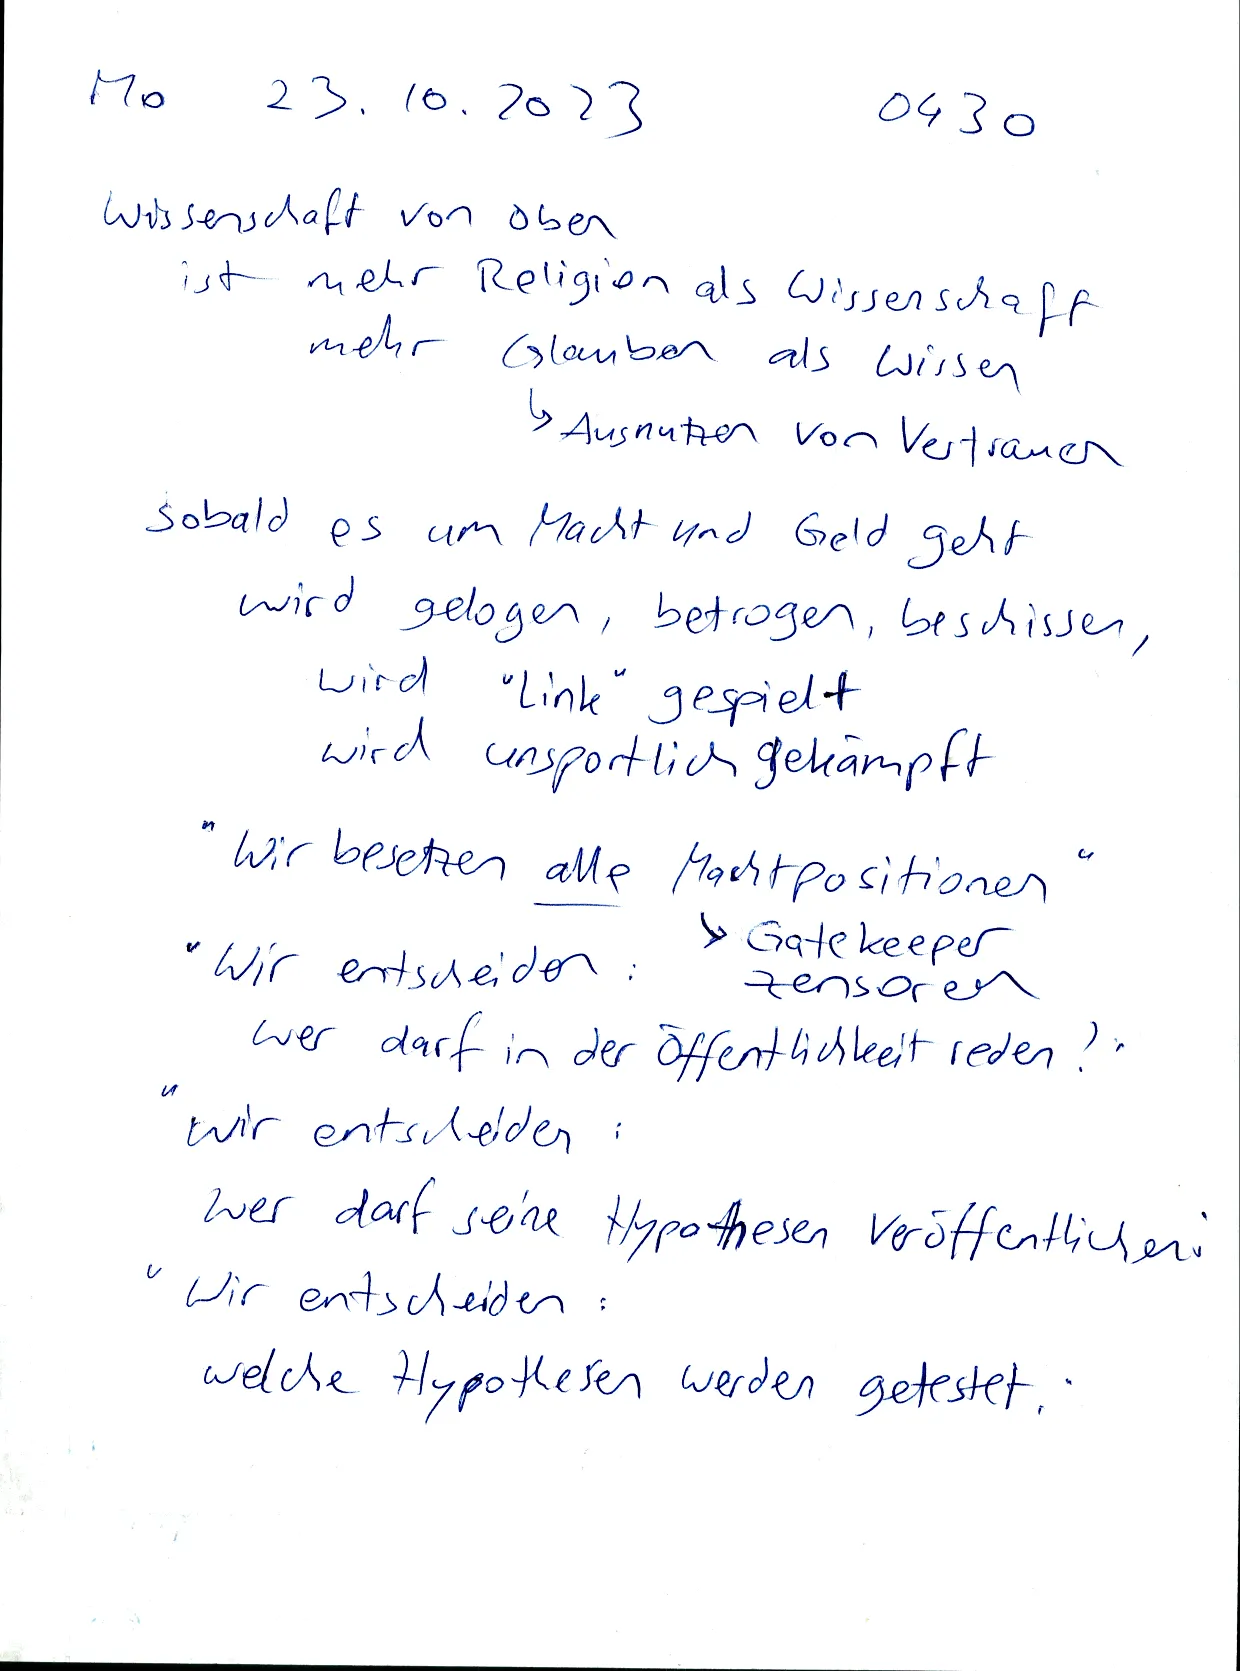 Mo 23.10.2023 0430
Wissenschaft von oben
ist mehr Religion als Wissenschaft
mehr Glauben als Wissen
↳ Ausnutzen von Vertrauen
sobald es um Macht und Geld geht
wird gelogen, betrogen, beschissen,
wird "Link" gespielt
wird unsportlich gekämpft
"Wir besetzen alle Machtpositionen"
↳ Gatekeeper
"Wir entscheiden: Zensoren
wer darf in der Öffentlichkeit reden?"
"Wir entscheiden:
wer darf seine Hypothesen veröffentlichen."
"Wir entscheiden:
welche Hypothesen werden getestet."